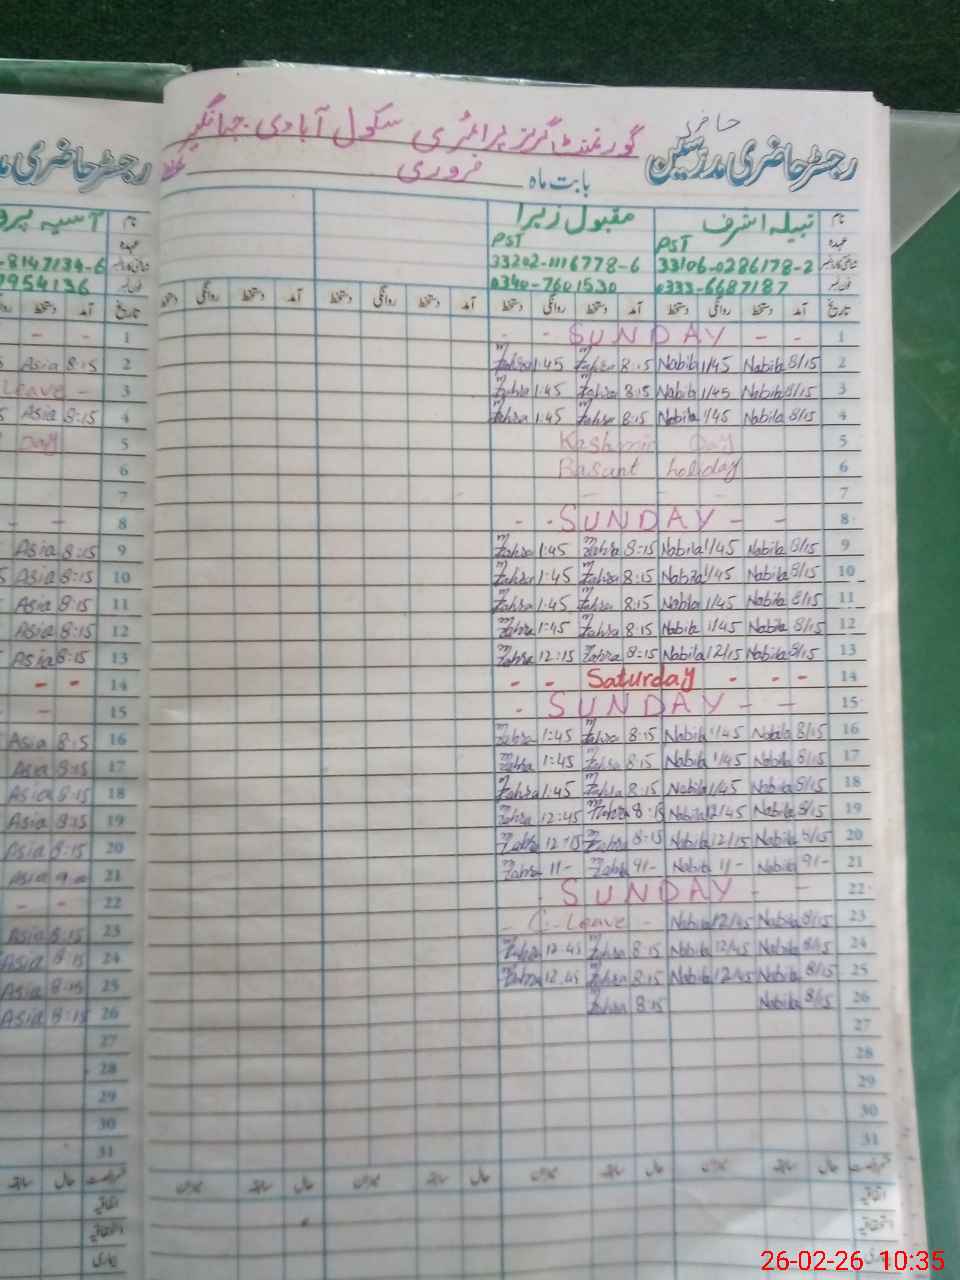 حاضری
گورنمنٹ گرلز پرائمری سکول آبادی جہانگیر
رجسٹر حاضری مدرسین
بابت ماہ فروری
نام نبیلہ اشرف مقبول زہرا
عہدہ PST PST
33106-0286178-2 33202-1116778-6
0333-6687187 0340-7601530
تاریخ آمد دستخط روانگی دستخط آمد دستخط روانگی دستخط آمد دستخط روانگی دستخط آمد دستخط روانگی دستخط
- - SUNDAY - - 1
M Zahra 1:45 M Zahra 8:15 Nabila 1/45 Nabila 8/15 2
M Zahra 1:45 M Zahra 8:15 Nabila 1/45 Nabila 8/15 3
M Zahra 1:45 M Zahra 8:15 Nabila 1/45 Nabila 8/15 4
Kashmir Day 5
Basant holiday 6
7
- - SUNDAY - - 8
M Zahra 1:45 M Zahra 8:15 Nabila 1/45 Nabila 8/15 9
M Zahra 1:45 M Zahra 8:15 Nabila 1/45 Nabila 8/15 10
M Zahra 1:45 M Zahra 8:15 Nabila 1/45 Nabila 8/15 11
M Zahra 1:45 M Zahra 8:15 Nabila 1/45 Nabila 8/15 12
M Zahra 12:15 M Zahra 8:15 Nabila 12/15 Nabila 8/15 13
- - Saturday - - - 14
- SUNDAY - - 15
M Zahra 1:45 M Zahra 8:15 Nabila 1/45 Nabila 8/15 16
M Zahra 1:45 M Zahra 8:15 Nabila 1/45 Nabila 8/15 17
M Zahra 1:45 M Zahra 8:15 Nabila 1/45 Nabila 8/15 18
M Zahra 12:45 M Zahra 8:15 Nabila 12/45 Nabila 8/15 19
M Zahra 12:15 M Zahra 8:15 Nabila 12/15 Nabila 8/15 20
M Zahra 11- M Zahra 9/- Nabila 11- Nabila 9/- 21
SUNDAY - - 22
- C-Leave - Nabila 12/45 Nabila 8/15 23
M Zahra 12:45 M Zahra 8:15 Nabila 12/45 Nabila 8/15 24
M Zahra 12:45 M Zahra 8:15 Nabila 12/45 Nabila 8/15 25
M Zahra 8:15 Nabila 8/15 26
27
28
29
30
31
رجسٹر حاضری
آسیہ
-8147134-6
7954136
تاریخ آمد دستخط
- - 1
Asia 8:15 2
Leave - 3
Asia 8:15 4
Day 5
6
7
- - 8
Asia 8:15 9
Asia 8:15 10
Asia 8:15 11
Asia 8:15 12
Asia 8:15 13
- - 14
- 15
Asia 8:15 16
Asia 8:15 17
Asia 8:15 18
Asia 8:15 19
Asia 8:15 20
Asia 9:00 21
- - 22
Asia 8:15 23
Asia 8:15 24
Asia 8:15 25
Asia 8:15 26
27
28
29
30
31
26-02-26 10:35